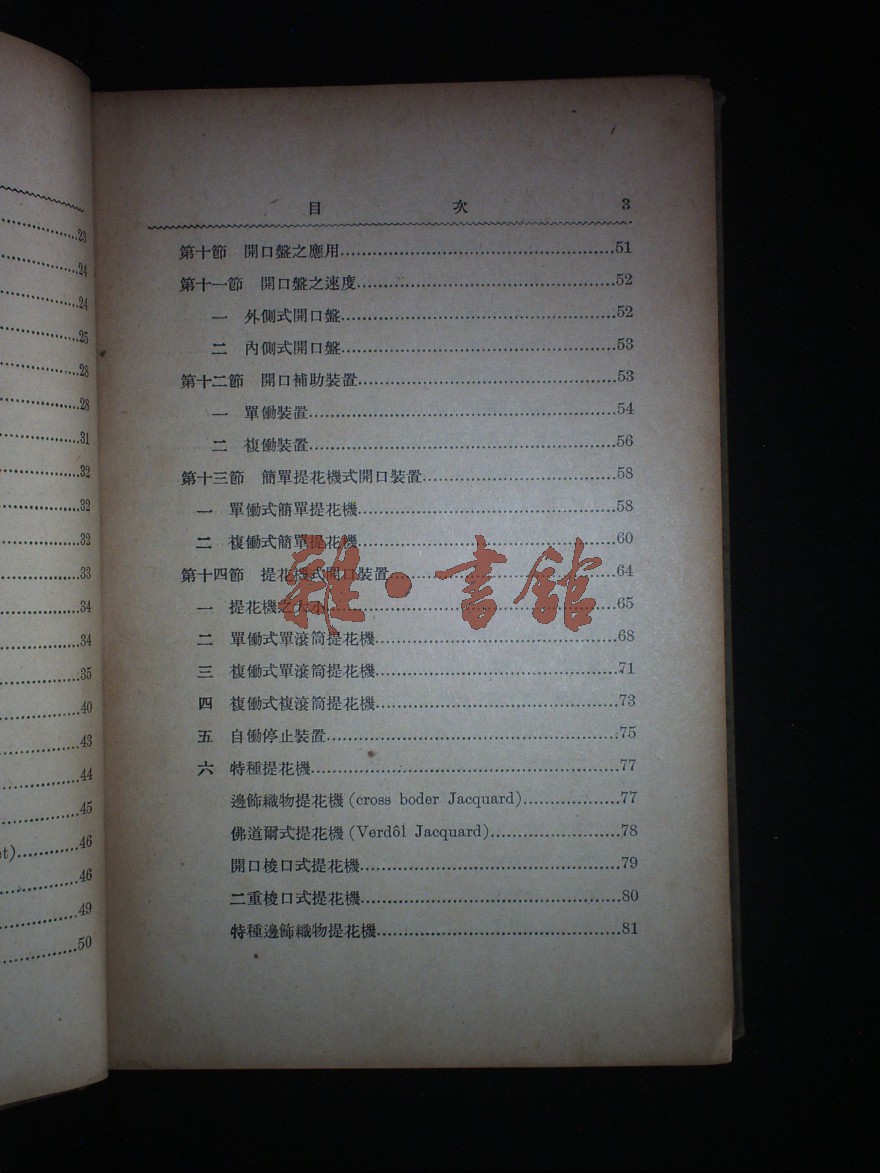 23
24
24
25
28
28
31
32
32
32
33
34
34
35
40
43
44
45
et)............46
46
49
50
目 次 3
第十節 開口盤之應用....................51
第十一節 開口盤之速度....................52
一 外側式開口盤....................52
二 內側式開口盤....................53
第十二節 開口補助裝置....................53
一 單働裝置....................54
二 複働裝置....................56
第十三節 簡單提花機式開口裝置....................58
一 單働式簡單提花機....................58
二 複働式簡單提花機....................60
第十四節 提花機式開口裝置....................64
一 提花機之大小....................65
二 單働式單滾筒提花機....................68
三 複働式單滾筒提花機....................71
四 複働式複滾筒提花機....................73
五 自働停止裝置....................75
六 特種提花機....................77
邊飾織物提花機 (cross boder Jacquard)....................77
佛道爾式提花機 (Verdôl Jacquard)....................78
開口梭口式提花機....................79
二重梭口式提花機....................80
特種邊飾織物提花機....................81
雜·書館